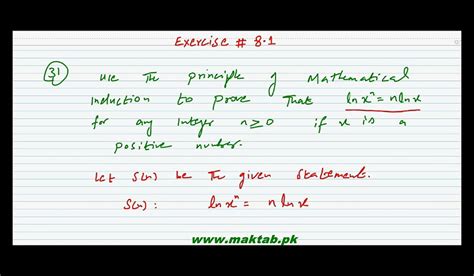 Exercise # 8.1
31 Use The principle of Mathematical
induction to prove That ln xⁿ = n ln x
for any integer n ≥ 0 if x is a
positive number.
Let S(n) be The given Statement.
S(n): ln xⁿ = n ln x
www.maktab.pk